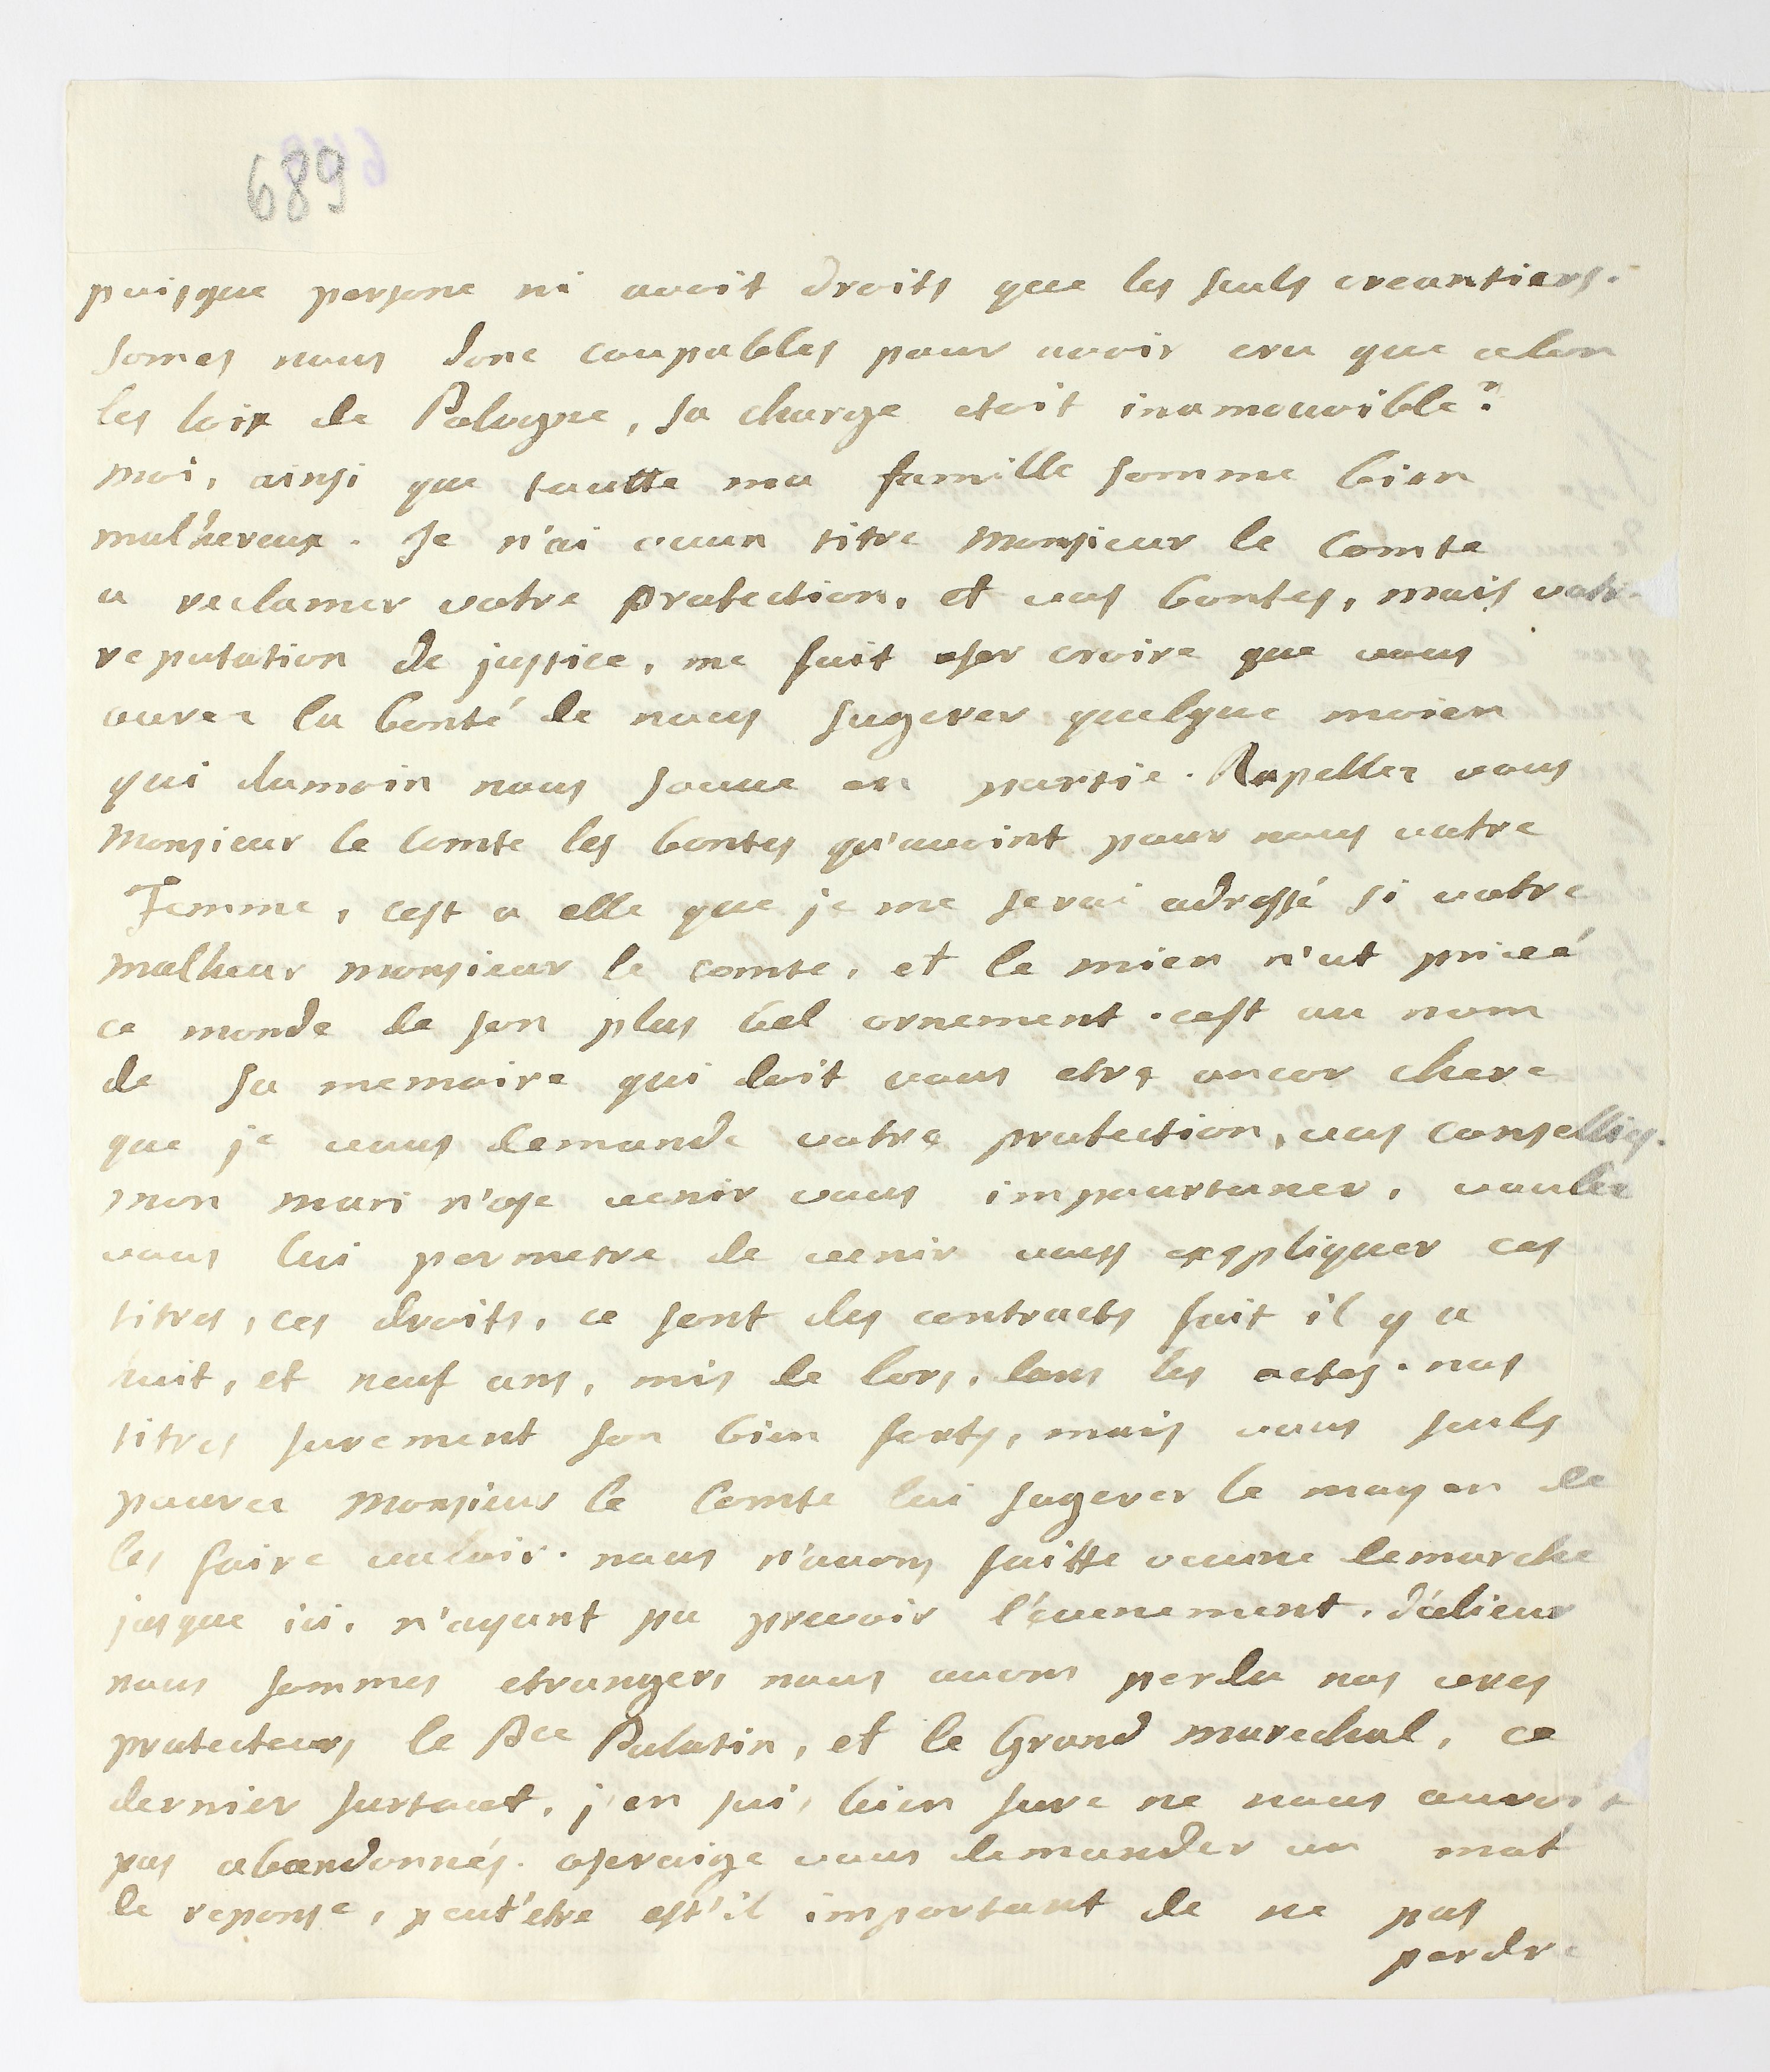 689
puisque persone ni avoit droits que les seuls creantiers.
somes nous donc coupables pour avoir cru que celon
les loix de Pologne, sa charge etoit inamouvible?
moi, ainsi que toutte ma famille somme bien
mal'hereux. Je n'ai aucun titre Monsieur le Comte
a reclamer votre protection, et vos bontes, mais votre
reputation de justice, me fait oser croire que vous
aurez la bonté de nous sugerer quelque moien
qui dumoin nous sauve en partie. Rapellez vous
Monsieur le Comte les bontes qu'avoint pour nous votre
Femme, cest a elle que je me serai adressé si votre
malheur monsieur le comte, et le mien n'ut priveé
ce monde de son plus bel ornement. cest au nom
de sa memoire qui doit vous etre ancor chere
que je vous demande votre protection, vos consellies.
mon mari n'ose venir vous impourtuner, voulez
vous lui permetre de venir vous exspliquer ces
titres, ces droits, ce sont des contracts fait il y a
huit, et neuf ans, mis de lors, dans les actes. nos
titres surement son bien forts, mais vous seuls
pouvez Monsieur le Comte lui sugerer le moyen de
les faire valoir. nous n'avons faitte aucune demarche
jusque ici, n'ayant pu prevoir l'évenement. d'alieur
nous sommes etrangers nous avons perdu nos vres
protecteurs, le Pce Palatin, et le Grand marechal, ce
dernier surtout, j'en sui, bien sure ne nous auroit
pas abandonnés. oseraige vous demander un mot
de reponse, peut'etre est'il important de ne pas
perdre